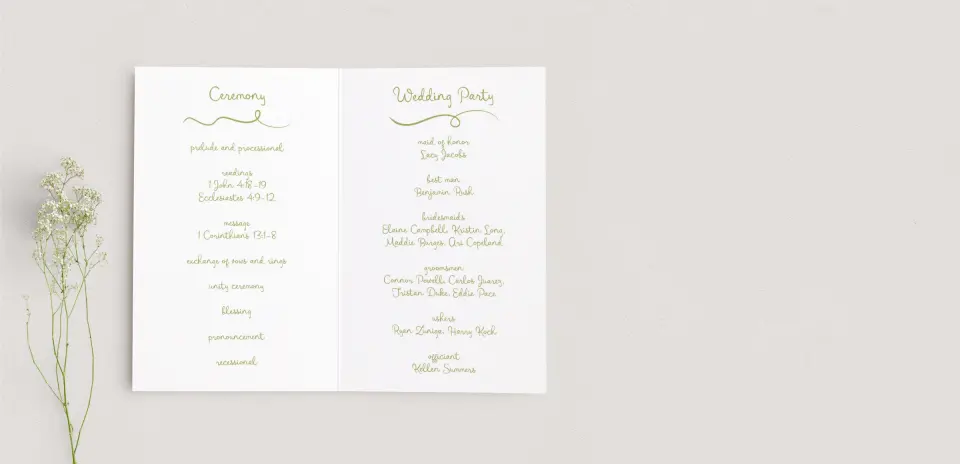 Ceremony
prelude and processional
readings
1 John 4:18-19
Ecclesiastes 4:9-12
message
1 Corinthians 13:1-8
exchange of vows and rings
unity ceremony
blessing
pronouncement
recessional
Wedding Party
maid of honor
Lacy Jacobs
best man
Benjamin Rush
bridesmaids
Elaine Campbell, Kristin Long,
Maddie Burges, Ari Copeland
groomsmen
Connor Powell, Carlos Juarez,
Tristan Duke, Eddie Pace
ushers
Ryan Zuniga, Harry Koch
officiant
Kellen Summers